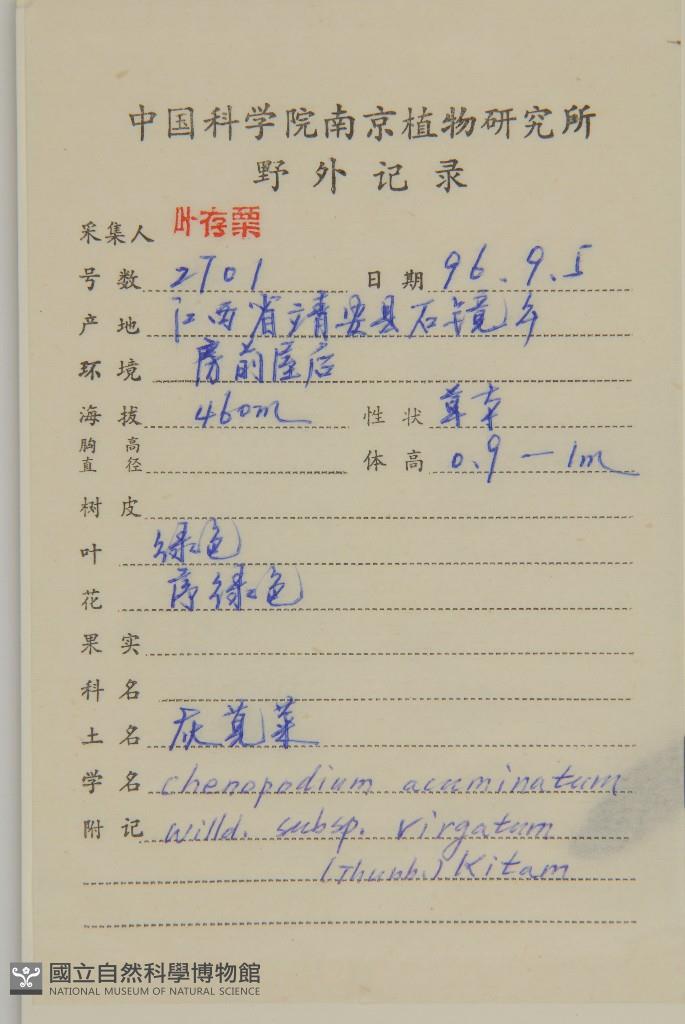 中国科学院南京植物研究所
野外记录
采集人 叶存粟
号数 2701 日期 96.9.5
产地 江西省靖安县石镜乡
环境 房前屋后
海拔 460m 性状 草本
胸高直径 体高 0.9—1m
树皮
叶 绿色
花 序绿色
果实
科名
土名 灰苋菜
学名 chenopodium acuminatum
附记 willd. subsp. virgatum
(Thunb.) Kitam
國立自然科學博物館
NATIONAL MUSEUM OF NATURAL SCIENCE